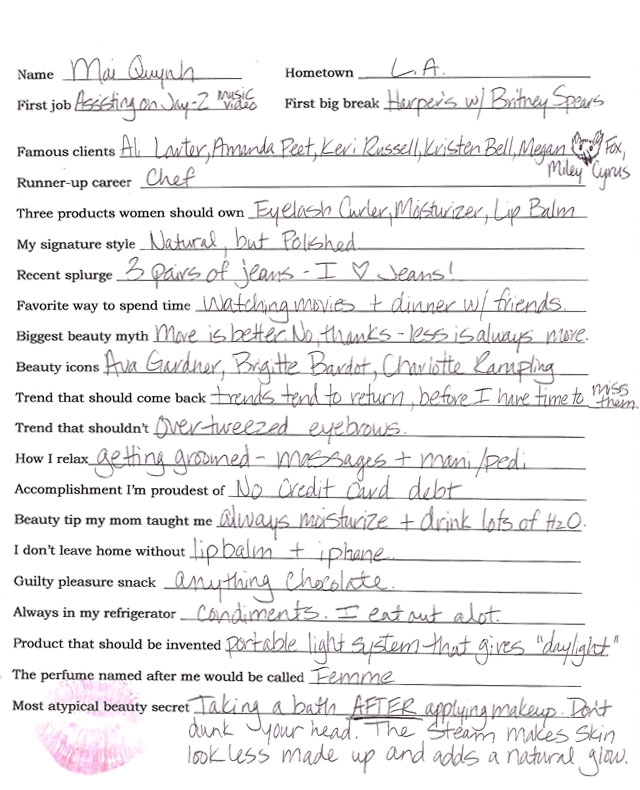 Name Mai Quynh Hometown L.A.
First job Assisting on Jay-Z music video First big break Harper's w/ Britney Spears
Famous clients Ali Larter, Amanda Peet, Keri Russell, Kristen Bell, Megan Fox,
Miley Cyrus
Runner-up career Chef
Three products women should own Eyelash Curler, Moisturizer, Lip Balm
My signature style Natural, but Polished
Recent splurge 3 pairs of jeans - I ♡ Jeans!
Favorite way to spend time Watching movies + dinner w/ friends.
Biggest beauty myth More is better. No, thanks - less is always more.
Beauty icons Ava Gardner, Brigitte Bardot, Charlotte Rampling
Trend that should come back trends tend to return, before I have time to miss them.
Trend that shouldn't over-tweezed eyebrows.
How I relax getting groomed - massages + mani/pedi
Accomplishment I'm proudest of No credit card debt
Beauty tip my mom taught me always moisturize + drink lots of H2O.
I don't leave home without lipbalm + iphone.
Guilty pleasure snack anything chocolate.
Always in my refrigerator condiments. I eat out alot.
Product that should be invented portable light system that gives "daylight."
The perfume named after me would be called Femme
Most atypical beauty secret Taking a bath AFTER applying makeup. Don't
dunk your head. The steam makes skin
look less made up and adds a natural glow.